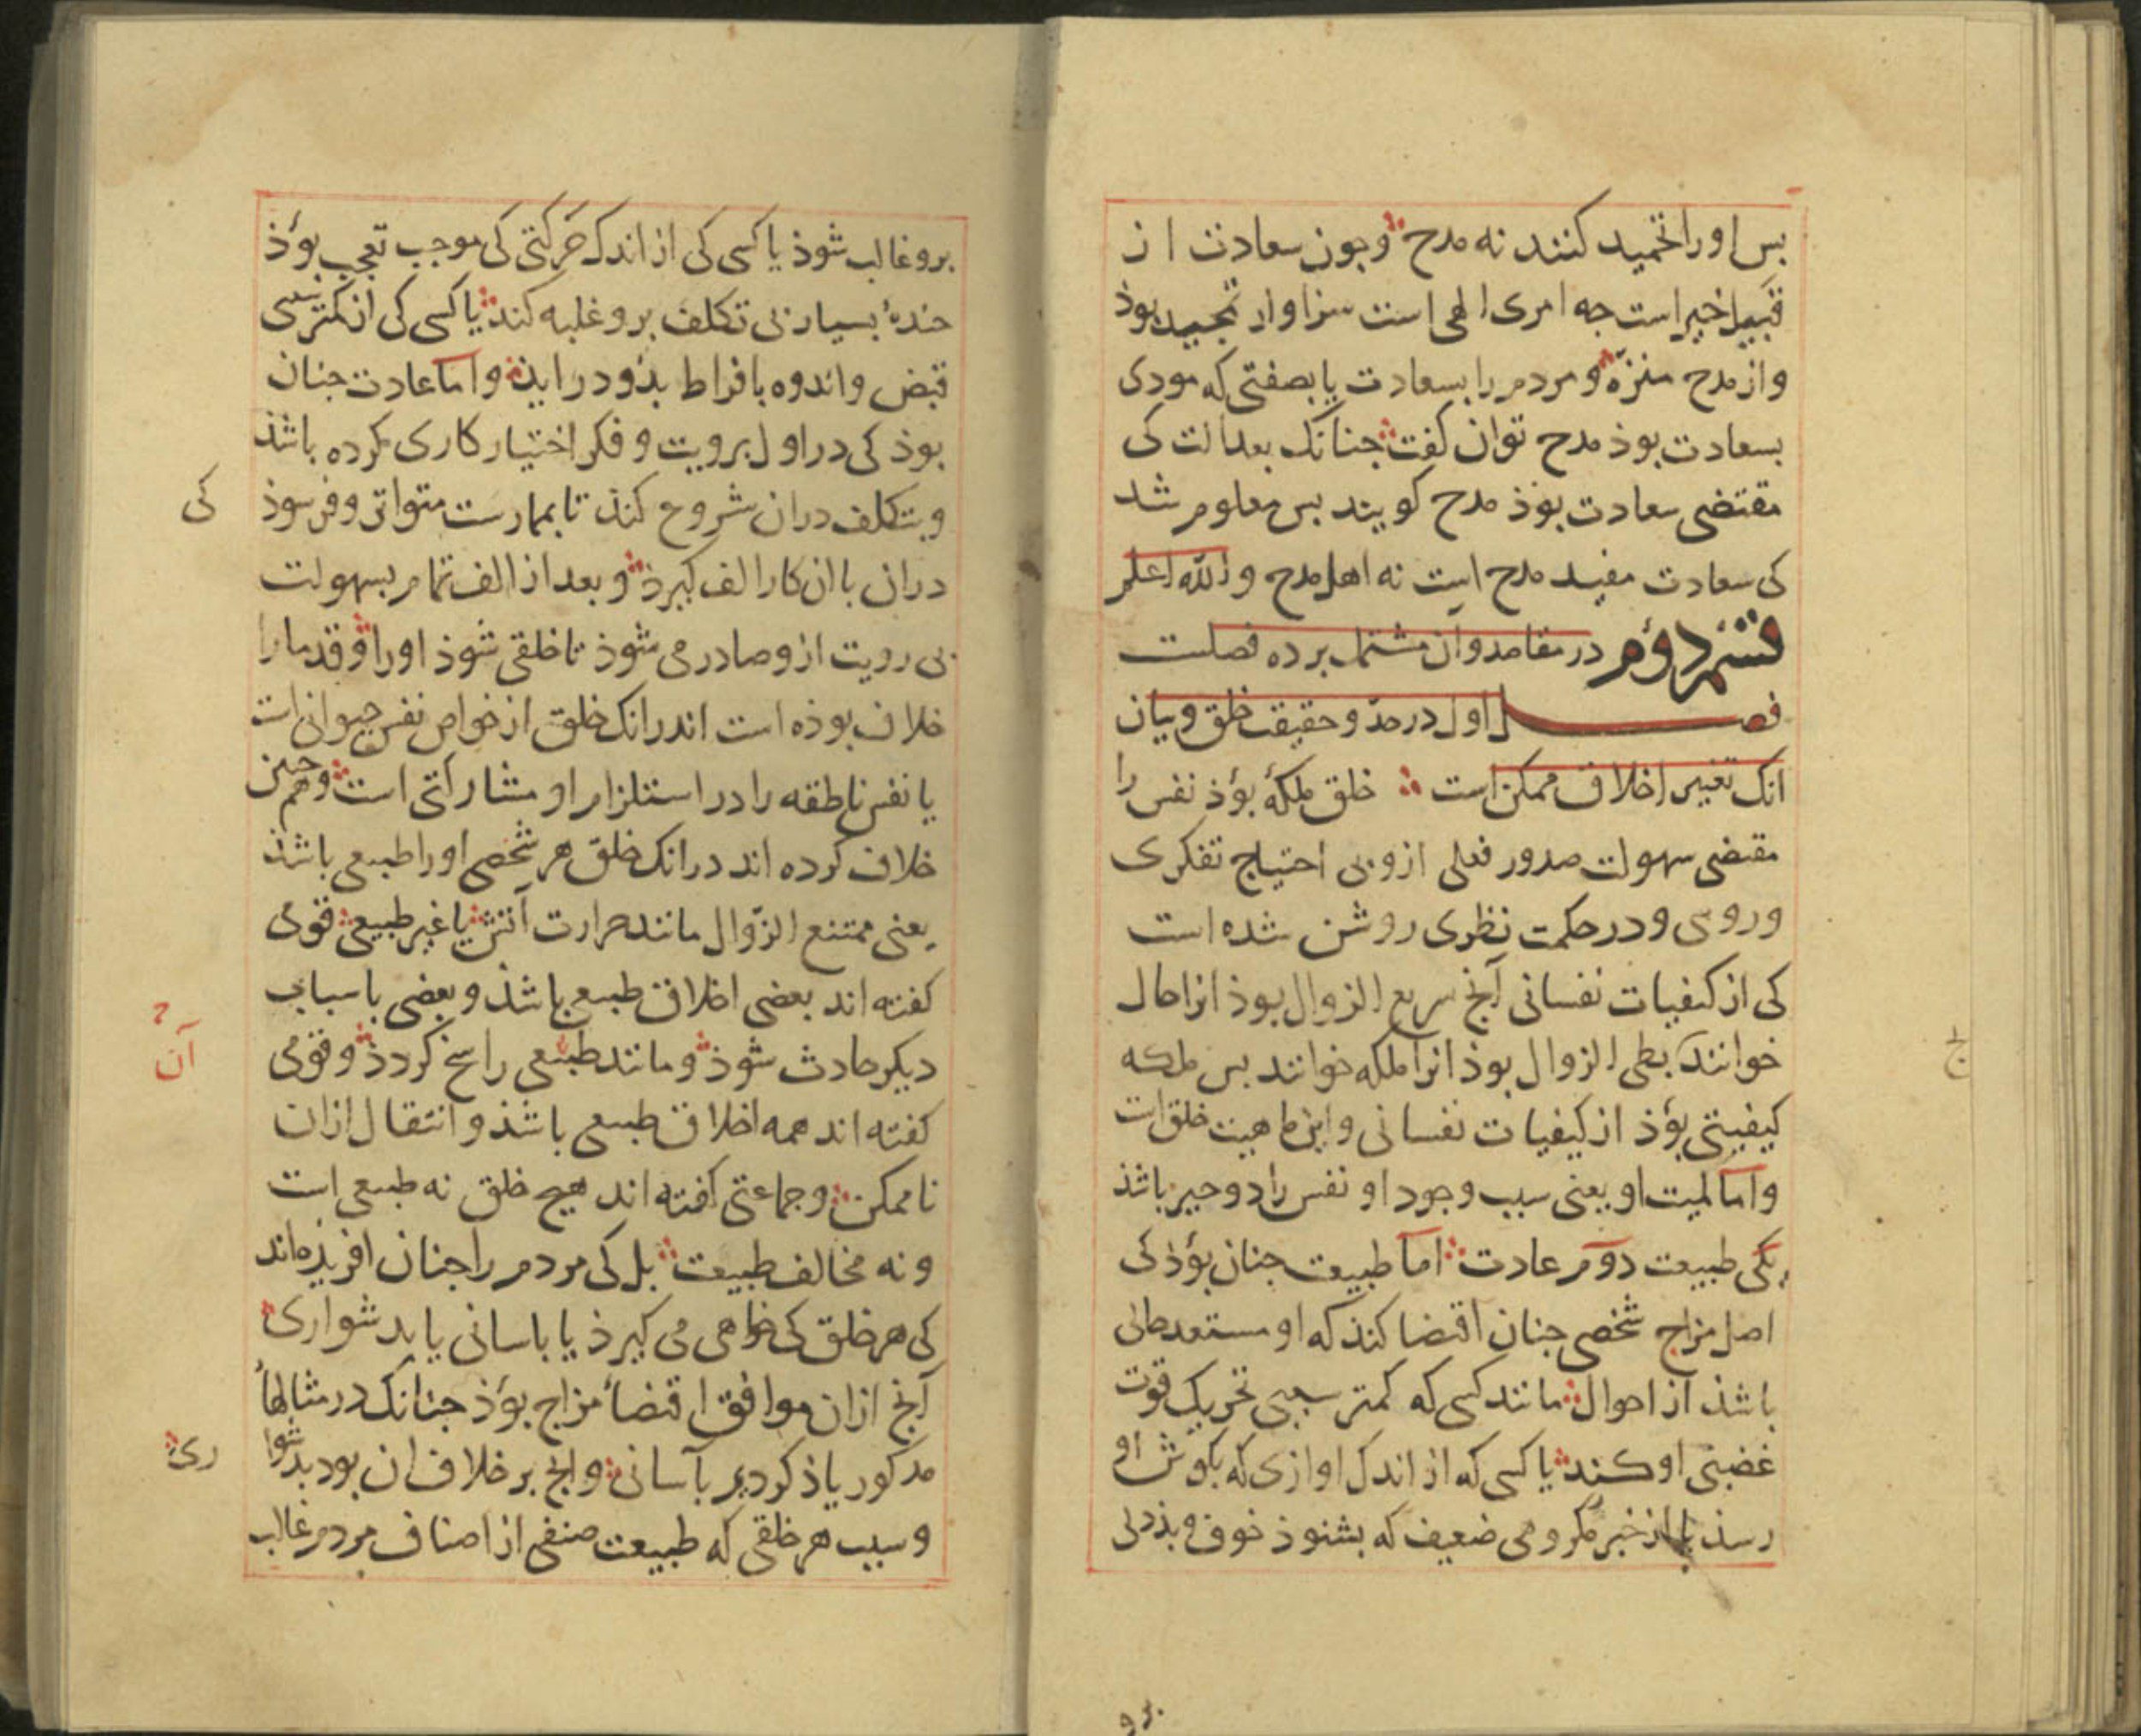 بس او را تحمید کنند نه مدح و جون سعادت از
قبیل خیر است جه امری الهی است سزاوار تمجید بوذ
و از مدح منزه و مردم را بسعادت یا بصفتی که مودی
بسعادت بوذ مدح توان کفت جنانک بعدالت کی
مقتضی سعادت بوذ مدح کویند بس معلوم شد
کی سعادت مفید مدح است نه اهل مدح و الله اعلم
قسم دوم در مقاصد و ان مشتمل بر ده فصلست
فصل اول در حد و حقیقت خلق و بیان
انک تغییر اخلاق ممکن است خلق ملکهٔ بوذ نفس را
مقتضی سهولت صدور فعلی ازو بی احتیاج تفکری
و رویتی و در حکمت نظری روشن شده است
کی از کیفیات نفسانی آنج سریع الزوال بوذ انرا حال
خوانند بطی الزوال بوذ انرا ملکه خوانند بس ملکه
کیفیتی بوذ از کیفیات نفسانی و این ماهیت خلق است
و اما لمیت او یعنی سبب وجود او نفس را دو جیز باشذ
یکی طبیعت دوم عادت اما طبیعت جنان بوذ کی
اصل مزاج شخصی جنان اقتضا کنذ که او مستعد حالی
باشذ از احوال مانند کسی که کمتر سببی تحریک قوت
غضبی او کند یا کسی که از اندک اوازی که بکوش او
رسذ یا از خبر مکروهی ضعیف که بشنوذ خوف و بذدلی
برو
ج
برو غالب شوذ یا کسی کی از اندک حرکتی کی موجب تعجب بوذ
خندهٔ بسیار بی تکلف برو غلبه کند یا کسی کی از کمتر سببی
قبض و اندوه بافراط بذو در اید و اما عادت جنان
بوذ کی در اول برویت و فکر اختیار کاری کرده باشذ
و بتکلف دران شروع کنذ تا بممارست متواتر و فرسوذکی
دران با ان کار الف کیرذ و بعد از الف تمام بسهولت
بی رویت ازو صادر می شوذ تا خلقی شوذ او را و قدما را
خلاف بوذه است اندر انک خلق از خواص نفس حیوانی است
یا نفس ناطقه را در استلزام او مشارکتی است و همجنین
خلاف کرده اند در انک خلق هر شخصی او را طبیعی باشذ
یعنی ممتنع الزوال مانند حرارت آتش یا غیر طبیعی قومی
کفته اند بعضی اخلاق طبیعی باشذ و بعضی باسباب
دیکر حادث شوذ و مانند طبیعی راسخ کردذ و قومی
آن
کفته اند همه اخلاق طبیعی باشذ و انتقال ازان
ناممکن و جماعتی کفته اند هیج خلق نه طبیعی است
و نه مخالف طبیعت بل کی مردم را جنان افریذه اند
کی هر خلق کی خواهی می کیرذ یا باسانی یا بدشواری
آنج ازان موافق اقتضاء مزاج بوذ جنانک در مثالهاء
مدکور یاذ کردیم بآسانی و انج بر خلاف ان بود بدشواری
و سبب هر خلقی که طبیعت صنفی از اصناف مردم غالب